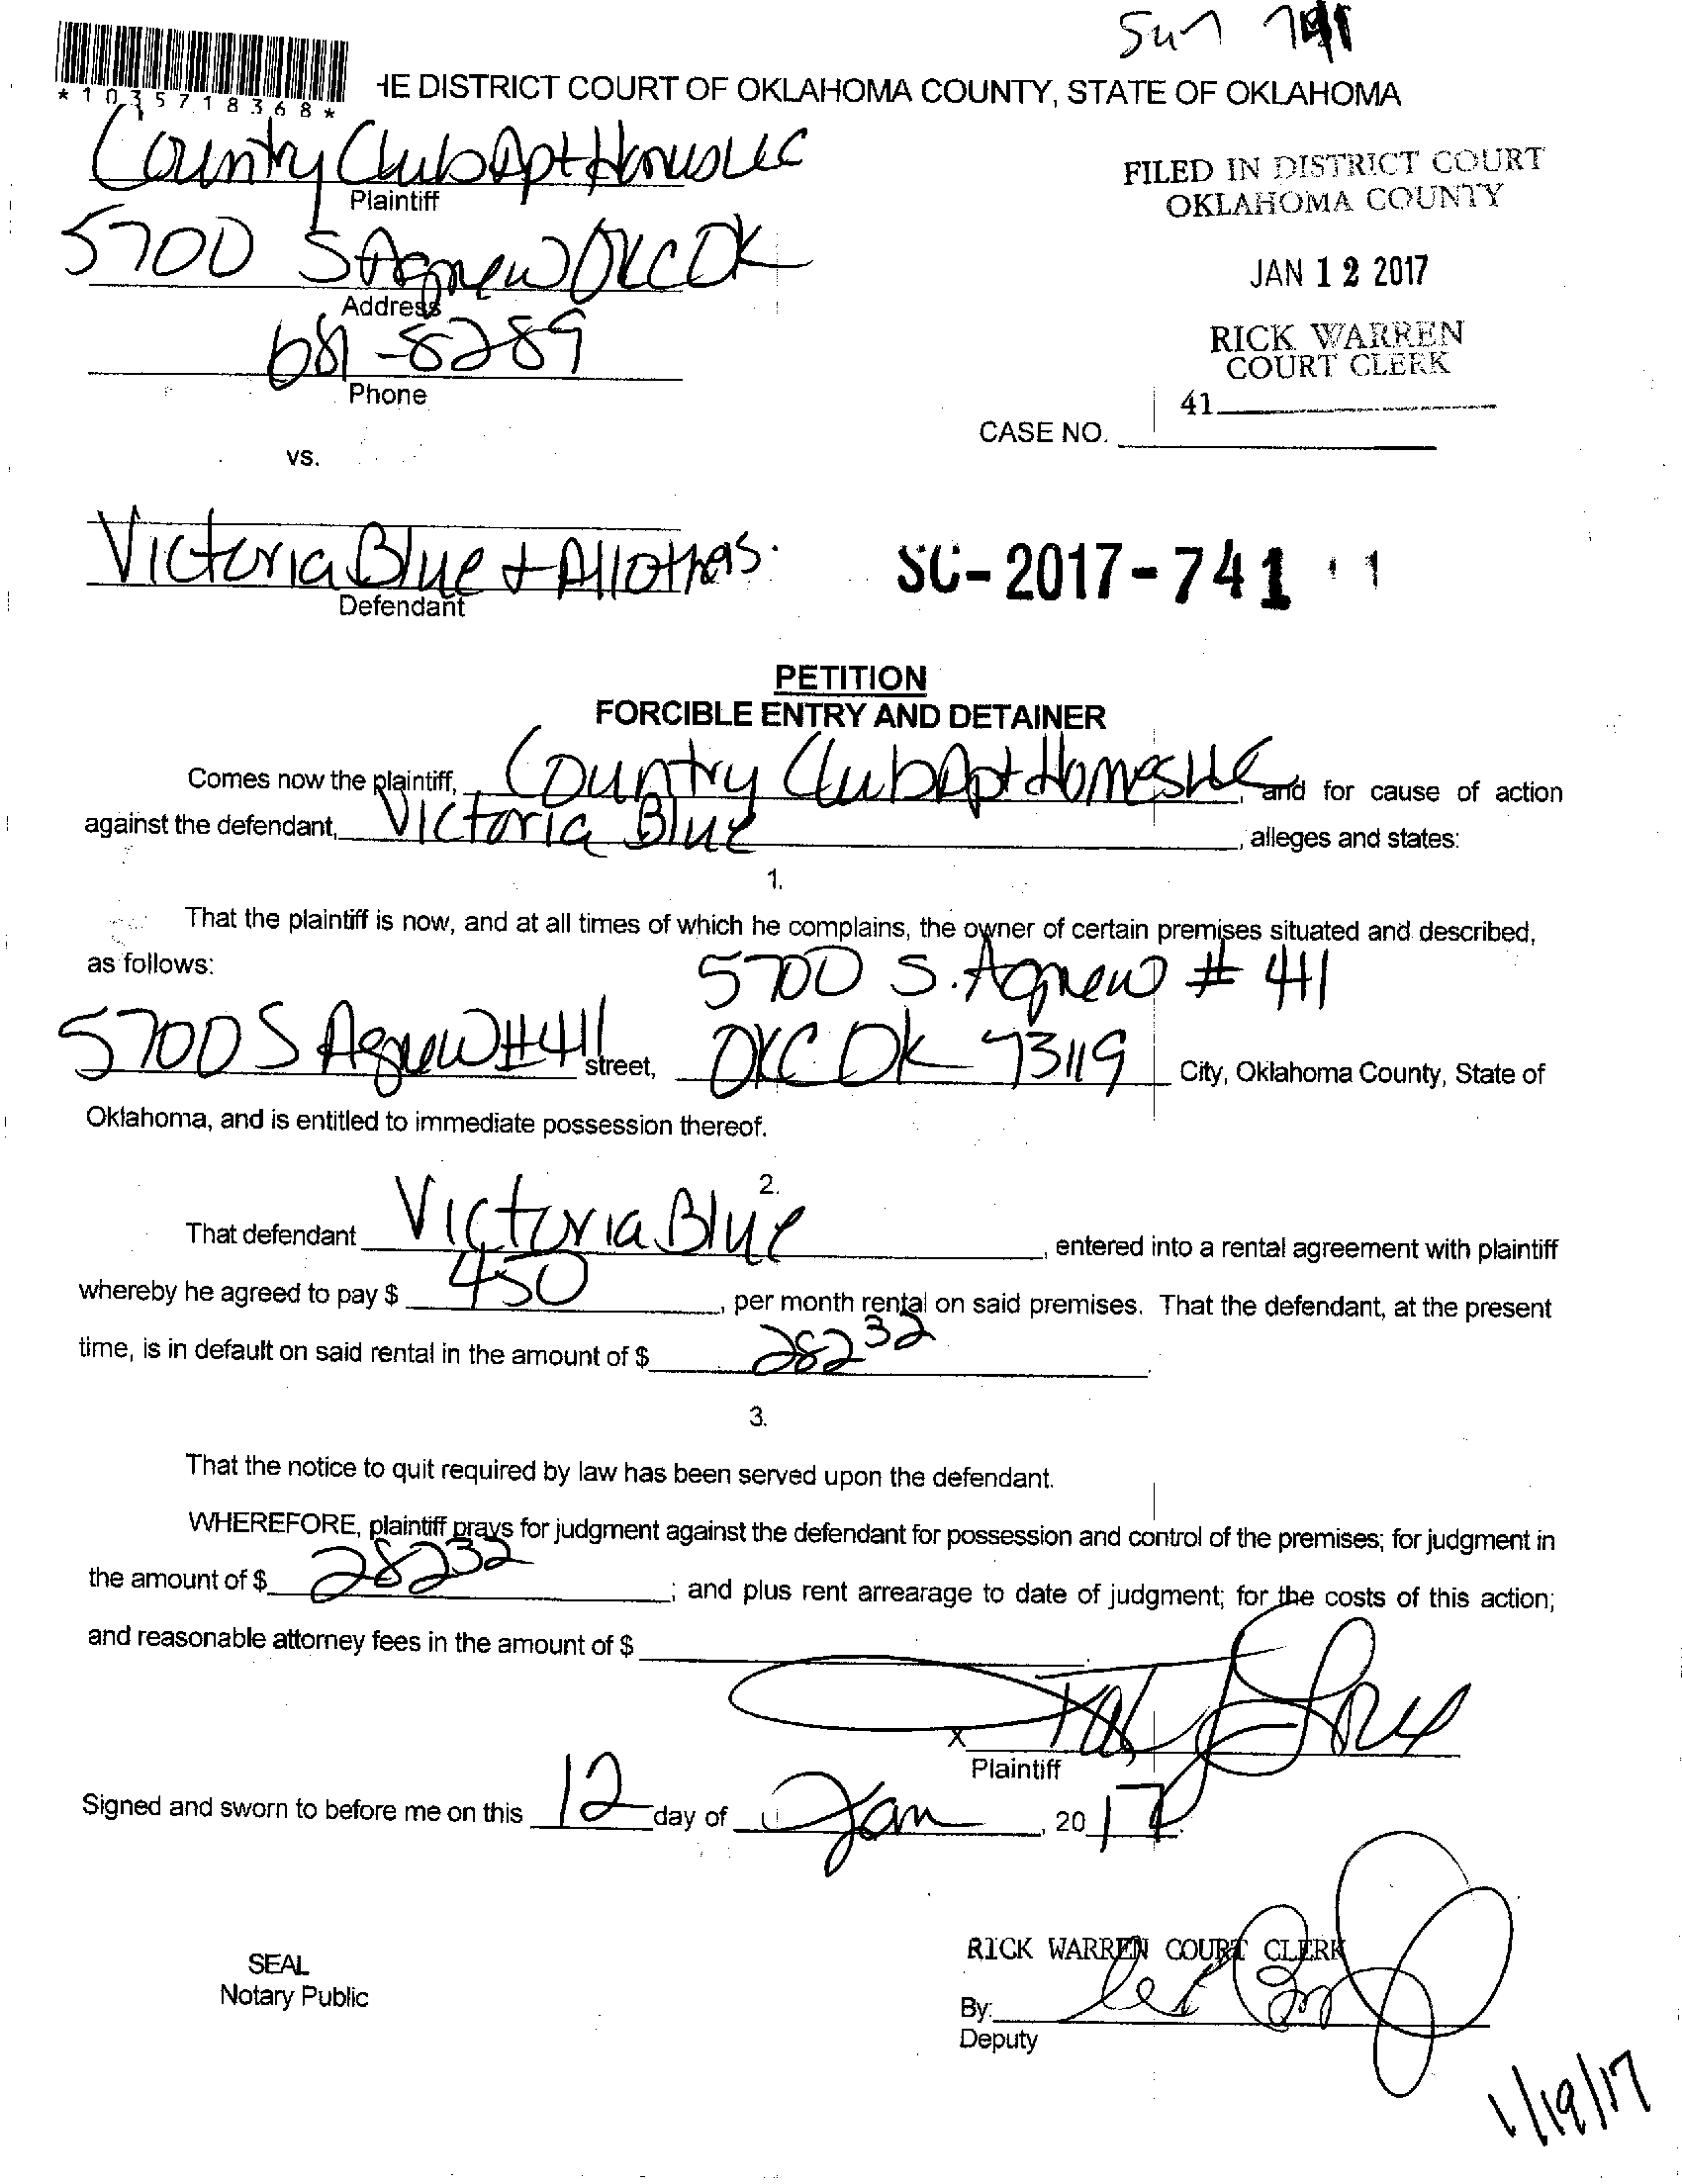 *1035718368*
HE DISTRICT COURT OF OKLAHOMA COUNTY, STATE OF OKLAHOMA
Country Club Apt Homes LLC
Plaintiff
5700 S Agnew OKC OK
Address
681-8289
Phone
FILED IN DISTRICT COURT
OKLAHOMA COUNTY
JAN 12 2017
RICK WARREN
COURT CLERK
41
CASE NO.
vs.
Victoria Blue + All others.
Defendant
SC-2017-741
PETITION
FORCIBLE ENTRY AND DETAINER
Comes now the plaintiff, Country Club Apt Homes LLC, and for cause of action
against the defendant, Victoria Blue, alleges and states:
1.
That the plaintiff is now, and at all times of which he complains, the owner of certain premises situated and described,
as follows: 5700 S. Agnew # 411
5700 S Agnew #411 street, OKC OK 73119 City, Oklahoma County, State of
Oklahoma, and is entitled to immediate possession thereof.
2.
That defendant Victoria Blue, entered into a rental agreement with plaintiff
whereby he agreed to pay $ 450, per month rental on said premises. That the defendant, at the present
time, is in default on said rental in the amount of $ 282 32.
3.
That the notice to quit required by law has been served upon the defendant.
WHEREFORE, plaintiff prays for judgment against the defendant for possession and control of the premises; for judgment in
the amount of $ 282 32; and plus rent arrearage to date of judgment; for the costs of this action;
and reasonable attorney fees in the amount of $
X
Plaintiff
Signed and sworn to before me on this 12 day of Jan, 2017.
SEAL
Notary Public
RICK WARREN COURT CLERK
By:
Deputy
1/19/17